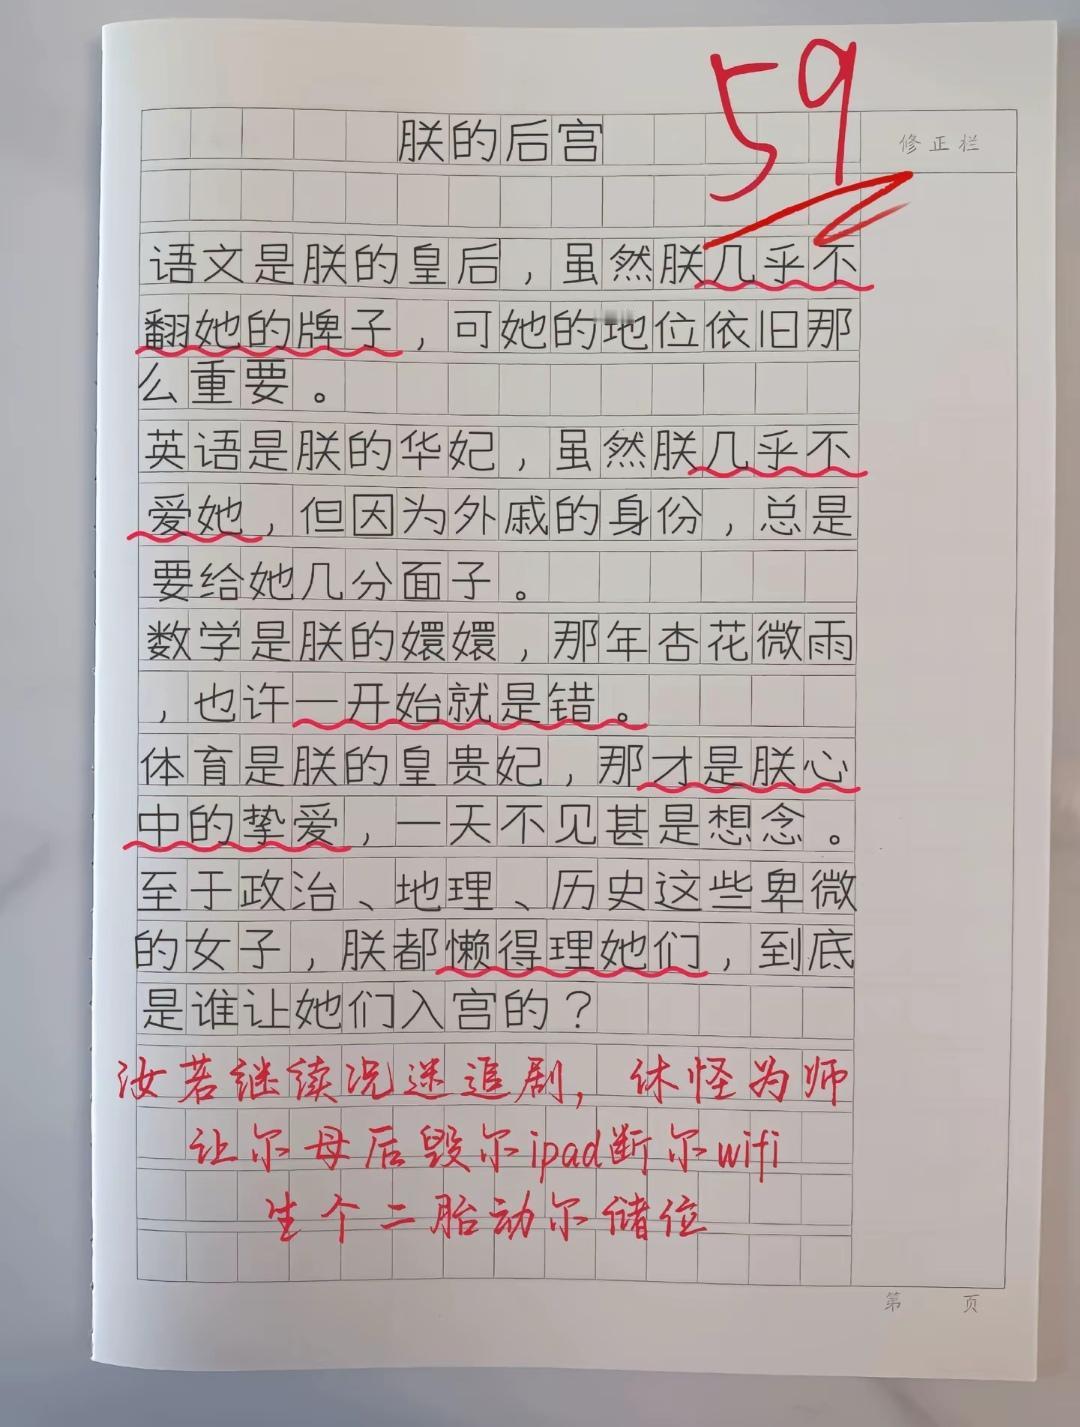 59
朕的后宫
修正栏
语文是朕的皇后，虽然朕几乎不
翻她的牌子，可她的地位依旧那
么重要。
英语是朕的华妃，虽然朕几乎不
爱她，但因为外戚的身份，总是
要给她几分面子。
数学是朕的嬛嬛，那年杏花微雨
，也许一开始就是错。
体育是朕的皇贵妃，那才是朕心
中的挚爱，一天不见甚是想念。
至于政治、地理、历史这些卑微
的女子，朕都懒得理她们，到底
是谁让她们入宫的？
汝若继续况迷追剧，休怪为师
让尔母后毁尔ipad断尔wifi
生个二胎动尔储位
第 页